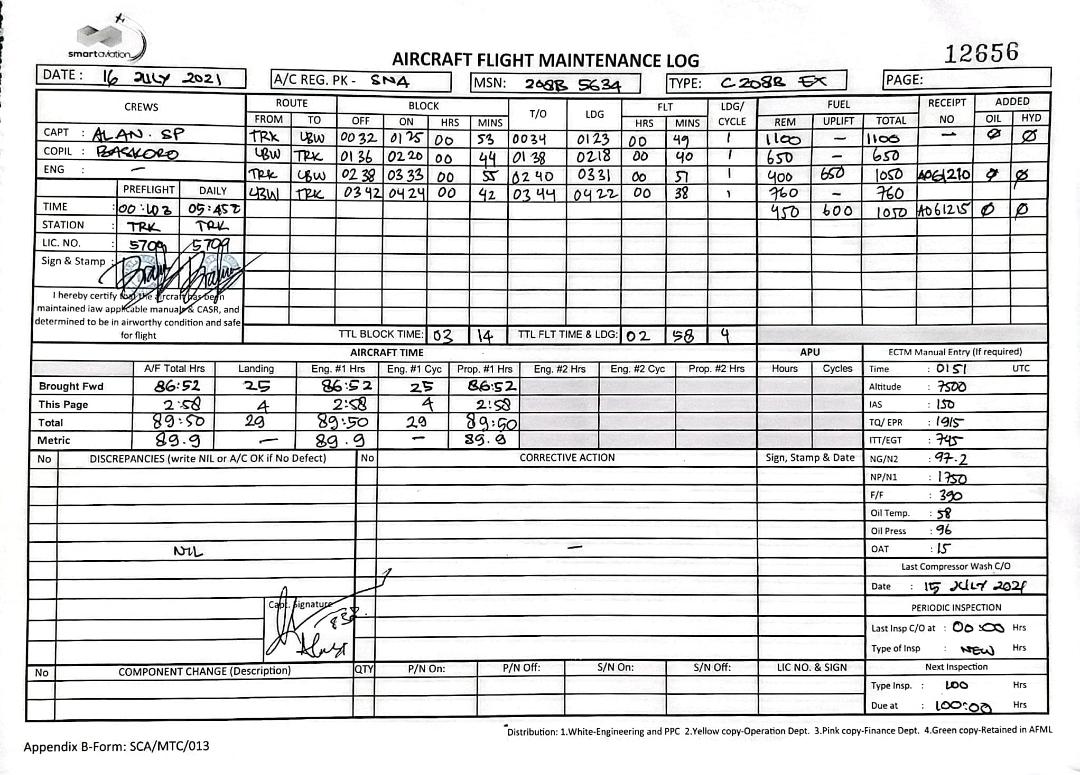 smartaviation
AIRCRAFT FLIGHT MAINTENANCE LOG
12656
DATE : 16 JULY 2021 A/C REG. PK - SNA MSN: 208B 5634 TYPE: C208B EX PAGE:
CREWS ROUTE BLOCK T/O LDG FLT LDG/ CYCLE FUEL RECEIPT NO ADDED
FROM TO OFF ON HRS MINS HRS MINS REM UPLIFT TOTAL OIL HYD
CAPT : ALAN. SP TRK LBW 0032 0125 00 53 0034 0123 00 49 1 1100 - 1100 - Ø Ø
COPIL : BASKORO LBW TRK 0136 0220 00 44 0138 0218 00 40 1 650 - 650
ENG : - TRK LBW 0238 0333 00 55 0240 0331 00 51 1 400 650 1050 A061210 Ø Ø
LBW TRK 0342 0424 00 42 0344 0422 00 38 1 760 - 760
PREFLIGHT DAILY
TIME : 00:10Z 05:45Z 450 600 1050 A061215 Ø Ø
STATION : TRK TRK
LIC. NO. : 5709 5709
Sign & Stamp :
I hereby certify that the aircraft has been
maintained iaw applicable manuals & CASR, and
determined to be in airworthy condition and safe
for flight
TTL BLOCK TIME: 03 14 TTL FLT TIME & LDG: 02 58 4
AIRCRAFT TIME APU ECTM Manual Entry (If required)
A/F Total Hrs Landing Eng. #1 Hrs Eng. #1 Cyc Prop. #1 Hrs Eng. #2 Hrs Eng. #2 Cyc Prop. #2 Hrs Hours Cycles Time : 0151 UTC
Brought Fwd 86:52 25 86:52 25 86:52 Altitude : 7500
This Page 2:58 4 2:58 4 2:58 IAS : 150
Total 89:50 29 89:50 29 89:50 TQ/ EPR : 1915
Metric 89.9 - 89.9 - 89.9 ITT/EGT : 745
No DISCREPANCIES (write NIL or A/C OK if No Defect) No CORRECTIVE ACTION Sign, Stamp & Date NG/N2 : 97.2
NP/N1 : 1750
F/F : 390
Oil Temp. : 58
Oil Press : 96
NIL - OAT : 15
Last Compressor Wash C/O
Date : 15 JULY 2021
Capt. Signature
PERIODIC INSPECTION
Last Insp C/O at : 00:00 Hrs
Type of Insp : NEW Hrs
No COMPONENT CHANGE (Description) QTY P/N On: P/N Off: S/N On: S/N Off: LIC NO. & SIGN Next Inspection
Type Insp. : 100 Hrs
Due at : 100:00 Hrs
Distribution: 1.White-Engineering and PPC 2.Yellow copy-Operation Dept. 3.Pink copy-Finance Dept. 4.Green copy-Retained in AFML
Appendix B-Form: SCA/MTC/013